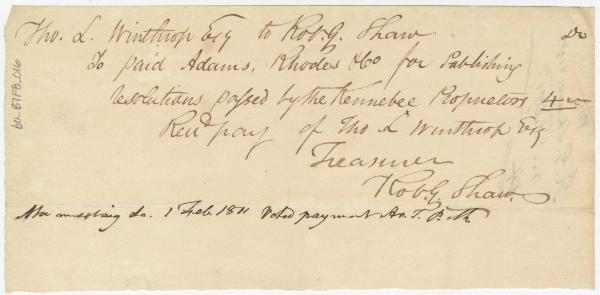 Tho. L. Winthrop Esq to Rob. G. Shaw Dr
To paid Adams, Rhodes & Co for Publishing
resolutions passed by the Kennebec Proprietors, 4
Recd pay of Tho L Winthrop Esq
Treasurer
Rob. G. Shaw.
At a meeting &c. 1 Feb. 1811 Voted payment